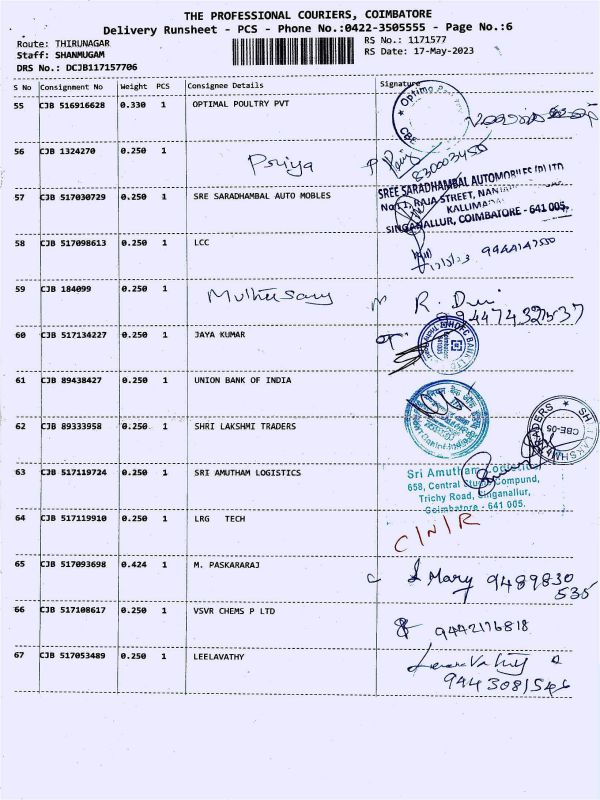 THE PROFESSIONAL COURIERS, COIMBATORE
Delivery Runsheet - PCS - Phone No.:0422-3505555 - Page No.:6
Route: THIRUNAGAR
Staff: SHANMUGAM
DRS No.: DCJB117157706
RS No.: 1171577
RS Date: 17-May-2023
S No Consignment No Weight PCS Consignee Details Signature
55 CJB 516916628 0.330 1 OPTIMAL POULTRY PVT
Optima
CBE
56 CJB 1324270 0.250 1 Priya
57 CJB 517030729 0.250 1 SRE SARADHAMBAL AUTO MOBLES
SREE SARADHAMBAL AUTOMOBILES (P) LTD
RAJA STREET,
SINGANALLUR, COIMBATORE - 641 005.
58 CJB 517098613 0.250 1 LCC
59 CJB 184099 0.250 1
R.
60 CJB 517134227 0.250 1 JAYA KUMAR
HDFC BANK LTD
61 CJB 89438427 0.250 1 UNION BANK OF INDIA
62 CJB 89333958 0.250 1 SHRI LAKSHMI TRADERS
CBE-05
63 CJB 517119724 0.250 1 SRI AMUTHAM LOGISTICS
Sri Amutham Logistics
658, Central Studio Compund,
Trichy Road, Singanallur,
Coimbatore - 641 005.
64 CJB 517119910 0.250 1 LRG TECH
C/N/R
65 CJB 517093698 0.424 1 M. PASKARARAJ
Mary 9489830
535
66 CJB 517108617 0.250 1 VSVR CHEMS P LTD
9442176818
67 CJB 517053489 0.250 1 LEELAVATHY
9443081546